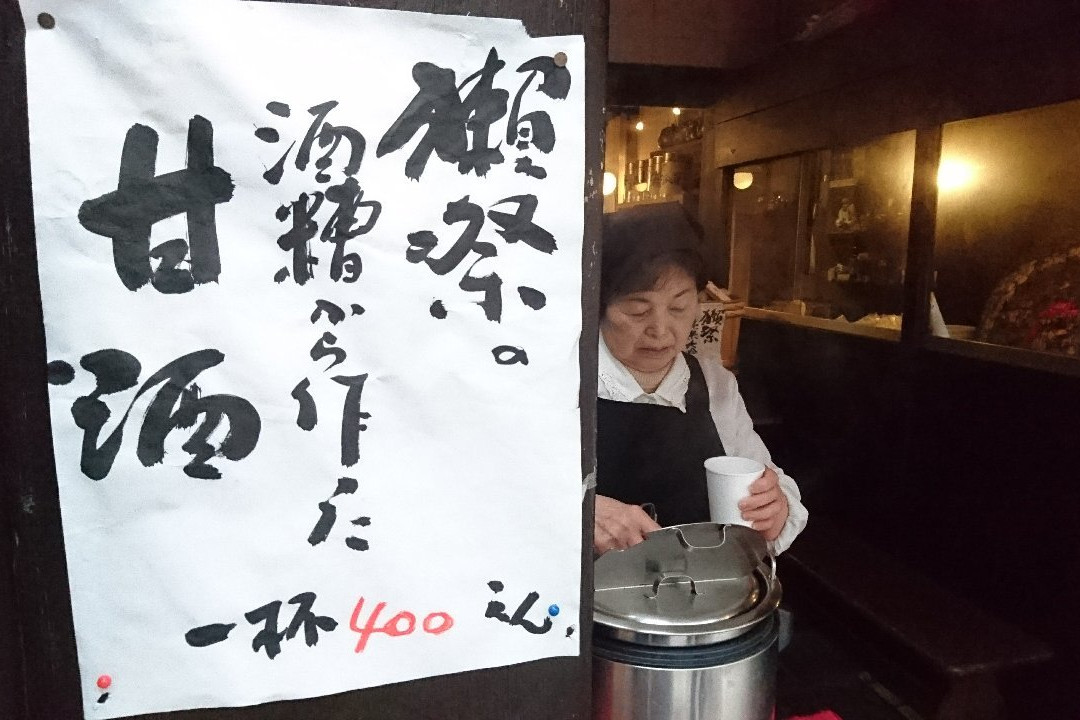 獺祭の
酒糟から作った
甘酒
一杯400えん
獺祭